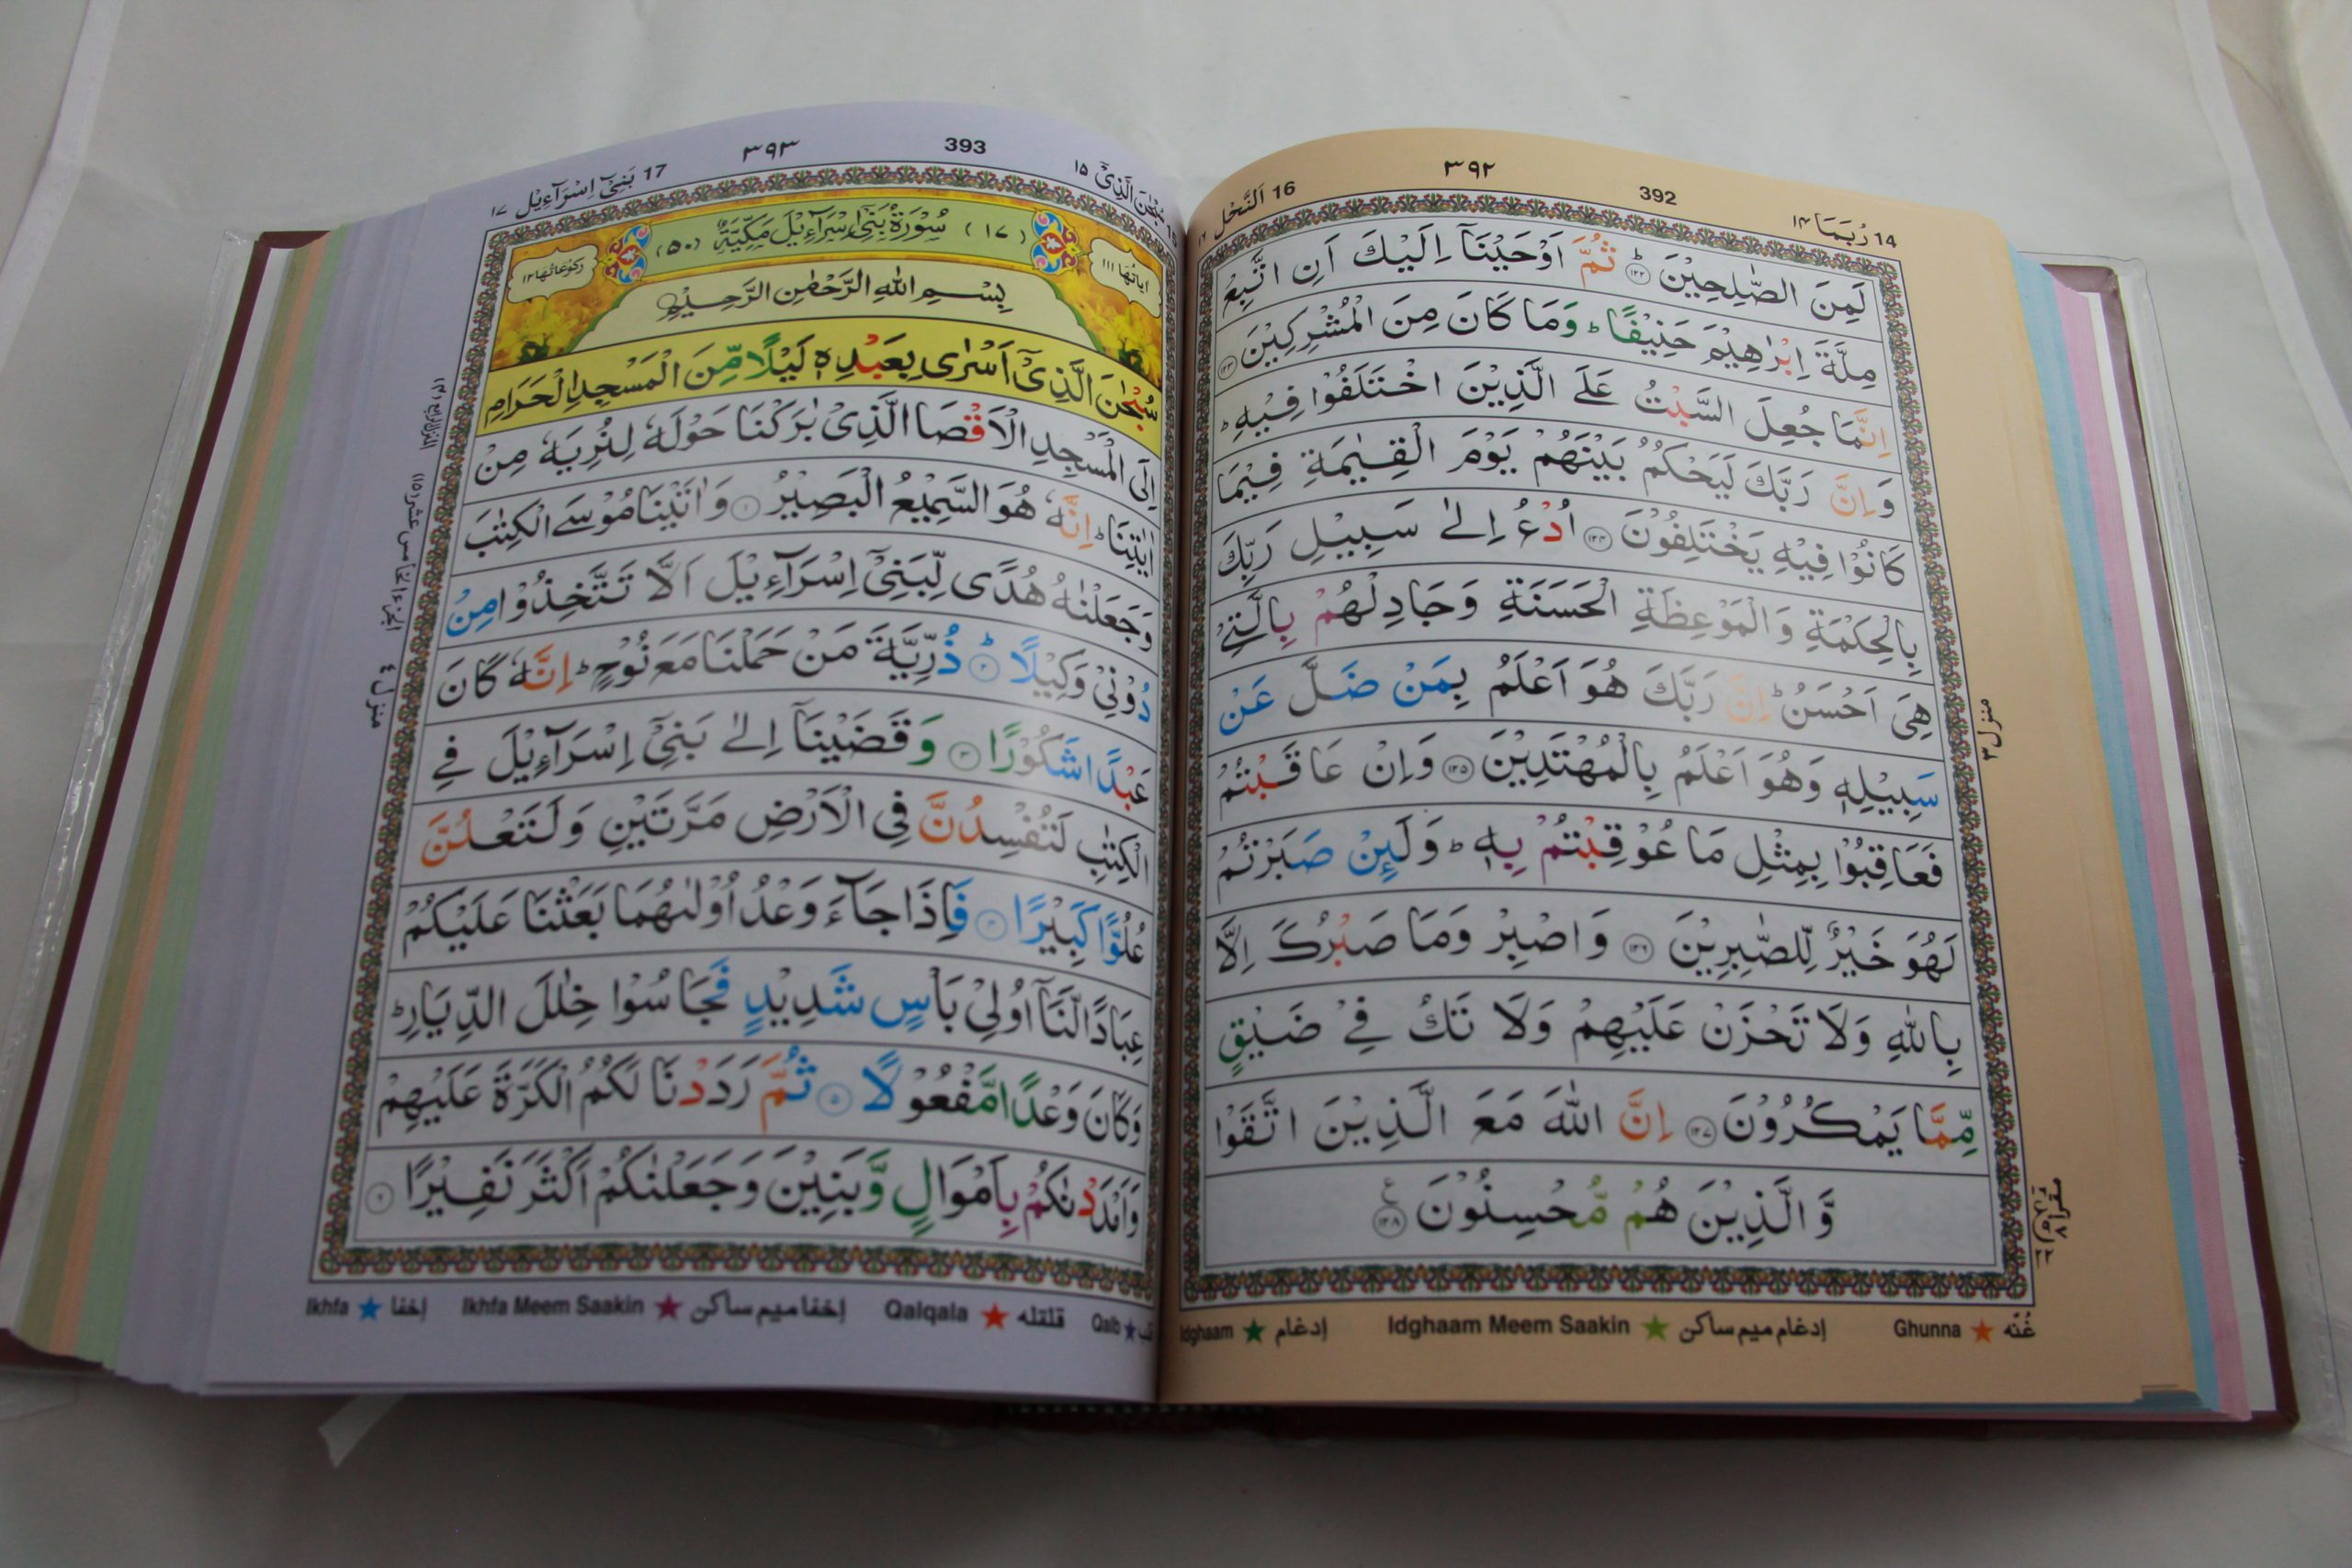 16 اَلنَّحْل
٣٩٢
392
رُبَمَا ١٤ 14
لَمِنَ الصّٰلِحِيْنَ ۟ؕ ١٢٢ ثُمَّ اَوْحَيْنَاۤ اِلَيْكَ اَنِ اتَّبِعْ
مِلَّةَ اِبْرٰهِيْمَ حَنِيْفًا ؕ وَمَا كَانَ مِنَ الْمُشْرِكِيْنَ ١٢٣
اِنَّمَا جُعِلَ السَّبْتُ عَلَي الَّذِيْنَ اخْتَلَفُوْا فِيْهِ ؕ
وَاِنَّ رَبَّكَ لَيَحْكُمُ بَيْنَهُمْ يَوْمَ الْقِيٰمَةِ فِيْمَا
كَانُوْا فِيْهِ يَخْتَلِفُوْنَ ١٢٤ اُدْعُ اِلٰي سَبِيْلِ رَبِّكَ
بِالْحِكْمَةِ وَالْمَوْعِظَةِ الْحَسَنَةِ وَجَادِلْهُمْ بِالَّتِيْ
هِيَ اَحْسَنُ ؕ اِنَّ رَبَّكَ هُوَ اَعْلَمُ بِمَنْ ضَلَّ عَنْ
سَبِيْلِهٖ وَهُوَ اَعْلَمُ بِالْمُهْتَدِيْنَ ١٢٥ وَاِنْ عَاقَبْتُمْ
فَعَاقِبُوْا بِمِثْلِ مَا عُوْقِبْتُمْ بِهٖ ؕ وَلَىِٕنْ صَبَرْتُمْ
لَهُوَ خَيْرٌ لِّلصّٰبِرِيْنَ ١٢٦ وَاصْبِرْ وَمَا صَبْرُكَ اِلَّا
بِاللّٰهِ وَلَا تَحْزَنْ عَلَيْهِمْ وَلَا تَكُ فِيْ ضَيْقٍ
مِّمَّا يَمْكُرُوْنَ ١٢٧ اِنَّ اللّٰهَ مَعَ الَّذِيْنَ اتَّقَوْا
وَّالَّذِيْنَ هُمْ مُّحْسِنُوْنَ ١٢٨
منزل ٣
غُنّه ★ Ghunna
إدغام ميم ساكن ★ Idghaam Meem Saakin
إدغام ★ Idghaam
١٧ بَنِيْۤ اِسْرَآءِيْل 17
٣٩٣
393
سُبْحٰنَ الَّذِيْۤ ١٥ 15
اٰيَاتُهَا ١١١
(١٧) سُوْرَةُ بَنِيْۤ اِسْرَآءِيْلَ مَكِّيَّةٌ (٥٠)
رُكُوْعَاتُهَا ١٢
بِسْمِ اللّٰهِ الرَّحْمٰنِ الرَّحِيْمِ
سُبْحٰنَ الَّذِيْۤ اَسْرٰى بِعَبْدِهٖ لَيْلًا مِّنَ الْمَسْجِدِ الْحَرَامِ
اِلَى الْمَسْجِدِ الْاَقْصَا الَّذِيْ بٰرَكْنَا حَوْلَهٗ لِنُرِيَهٗ مِنْ
اٰيٰتِنَا ؕ اِنَّهٗ هُوَ السَّمِيْعُ الْبَصِيْرُ ١ وَاٰتَيْنَا مُوْسَي الْكِتٰبَ
وَجَعَلْنٰهُ هُدًى لِّبَنِيْۤ اِسْرَآءِيْلَ اَلَّا تَتَّخِذُوْا مِنْ
دُوْنِيْ وَكِيْلًا ؕ ٢ ذُرِّيَّةَ مَنْ حَمَلْنَا مَعَ نُوْحٍ ؕ اِنَّهٗ كَانَ
عَبْدًا شَكُوْرًا ٣ وَقَضَيْنَاۤ اِلٰي بَنِيْۤ اِسْرَآءِيْلَ فِي
الْكِتٰبِ لَتُفْسِدُنَّ فِي الْاَرْضِ مَرَّتَيْنِ وَلَتَعْلُنَّ
عُلُوًّا كَبِيْرًا ٤ فَاِذَا جَآءَ وَعْدُ اُوْلٰىهُمَا بَعَثْنَا عَلَيْكُمْ
عِبَادًا لَّنَاۤ اُولِيْ بَاْسٍ شَدِيْدٍ فَجَاسُوْا خِلٰلَ الدِّيَارِ ؕ
وَكَانَ وَعْدًا مَّفْعُوْلًا ٥ ثُمَّ رَدَدْنَا لَكُمُ الْكَرَّةَ عَلَيْهِمْ
وَاَمْدَدْنٰكُمْ بِاَمْوَالٍ وَّبَنِيْنَ وَجَعَلْنٰكُمْ اَكْثَرَ نَفِيْرًا ٦
الجزء الخامس عشر (١٥)
منزل ٤
Qalb ★
قلقله ★ Qalqala
إخفا ميم ساكن ★ Ikhfa Meem Saakin
إخفا ★ Ikhfa